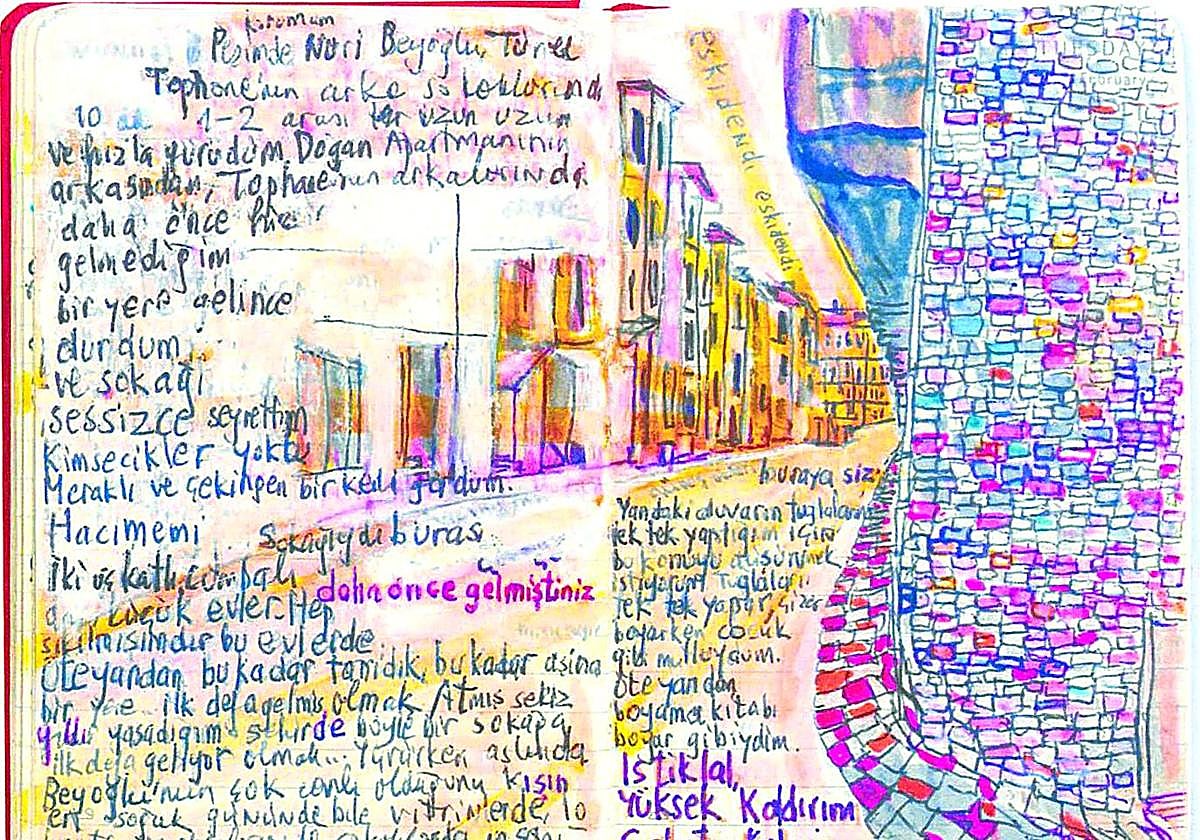 korumam
Peşimde Nuri Beyoğlu, Tünel
Tophane'nin arka sokaklarında
10 1-2 arası uzun uzun
ve hızla yürüdüm. Doğan Apartmanının
arkasından, Tophane'nin arkalarında
daha önce hiç
gelmediğim
bir yere gelince
durdum
ve sokağı
sessizce seyrettim
Kimsecikler yoktu
Meraklı ve çekingen bir kedi gördüm.
Hacımemi Sokağıydı burası
İki üç katlı cumbalı
daha önce gelmiştiniz
küçük evler. Hep
sıkılmışımdır bu evlerde
Öte yandan bu kadar tanıdık, bu kadar aşina
bir yere ilk defa gelmiş olmak. Atmış sekiz
yıldır yaşadığım şehirde böyle bir sokağa
ilk defa geliyor olmak... Yürürken aslında
Beyoğlu'nun çok canlı olduğunu kışın
en soğuk gününde bile vitrinlerde, 10
eskidendi eskidendi
TUESDAY
February
buraya siz
Yandaki duvarın tuğlalarını
tek tek yaptığım için
bu konuyu düşünmek
istiyorum. Tuğlaları
tek tek yapar, çizer
boyarken çocuk
gibi mutluydum.
Öte yandan
boyama kitabı
boyar gibiydim.
İstiklal,
Yüksek Kaldırım